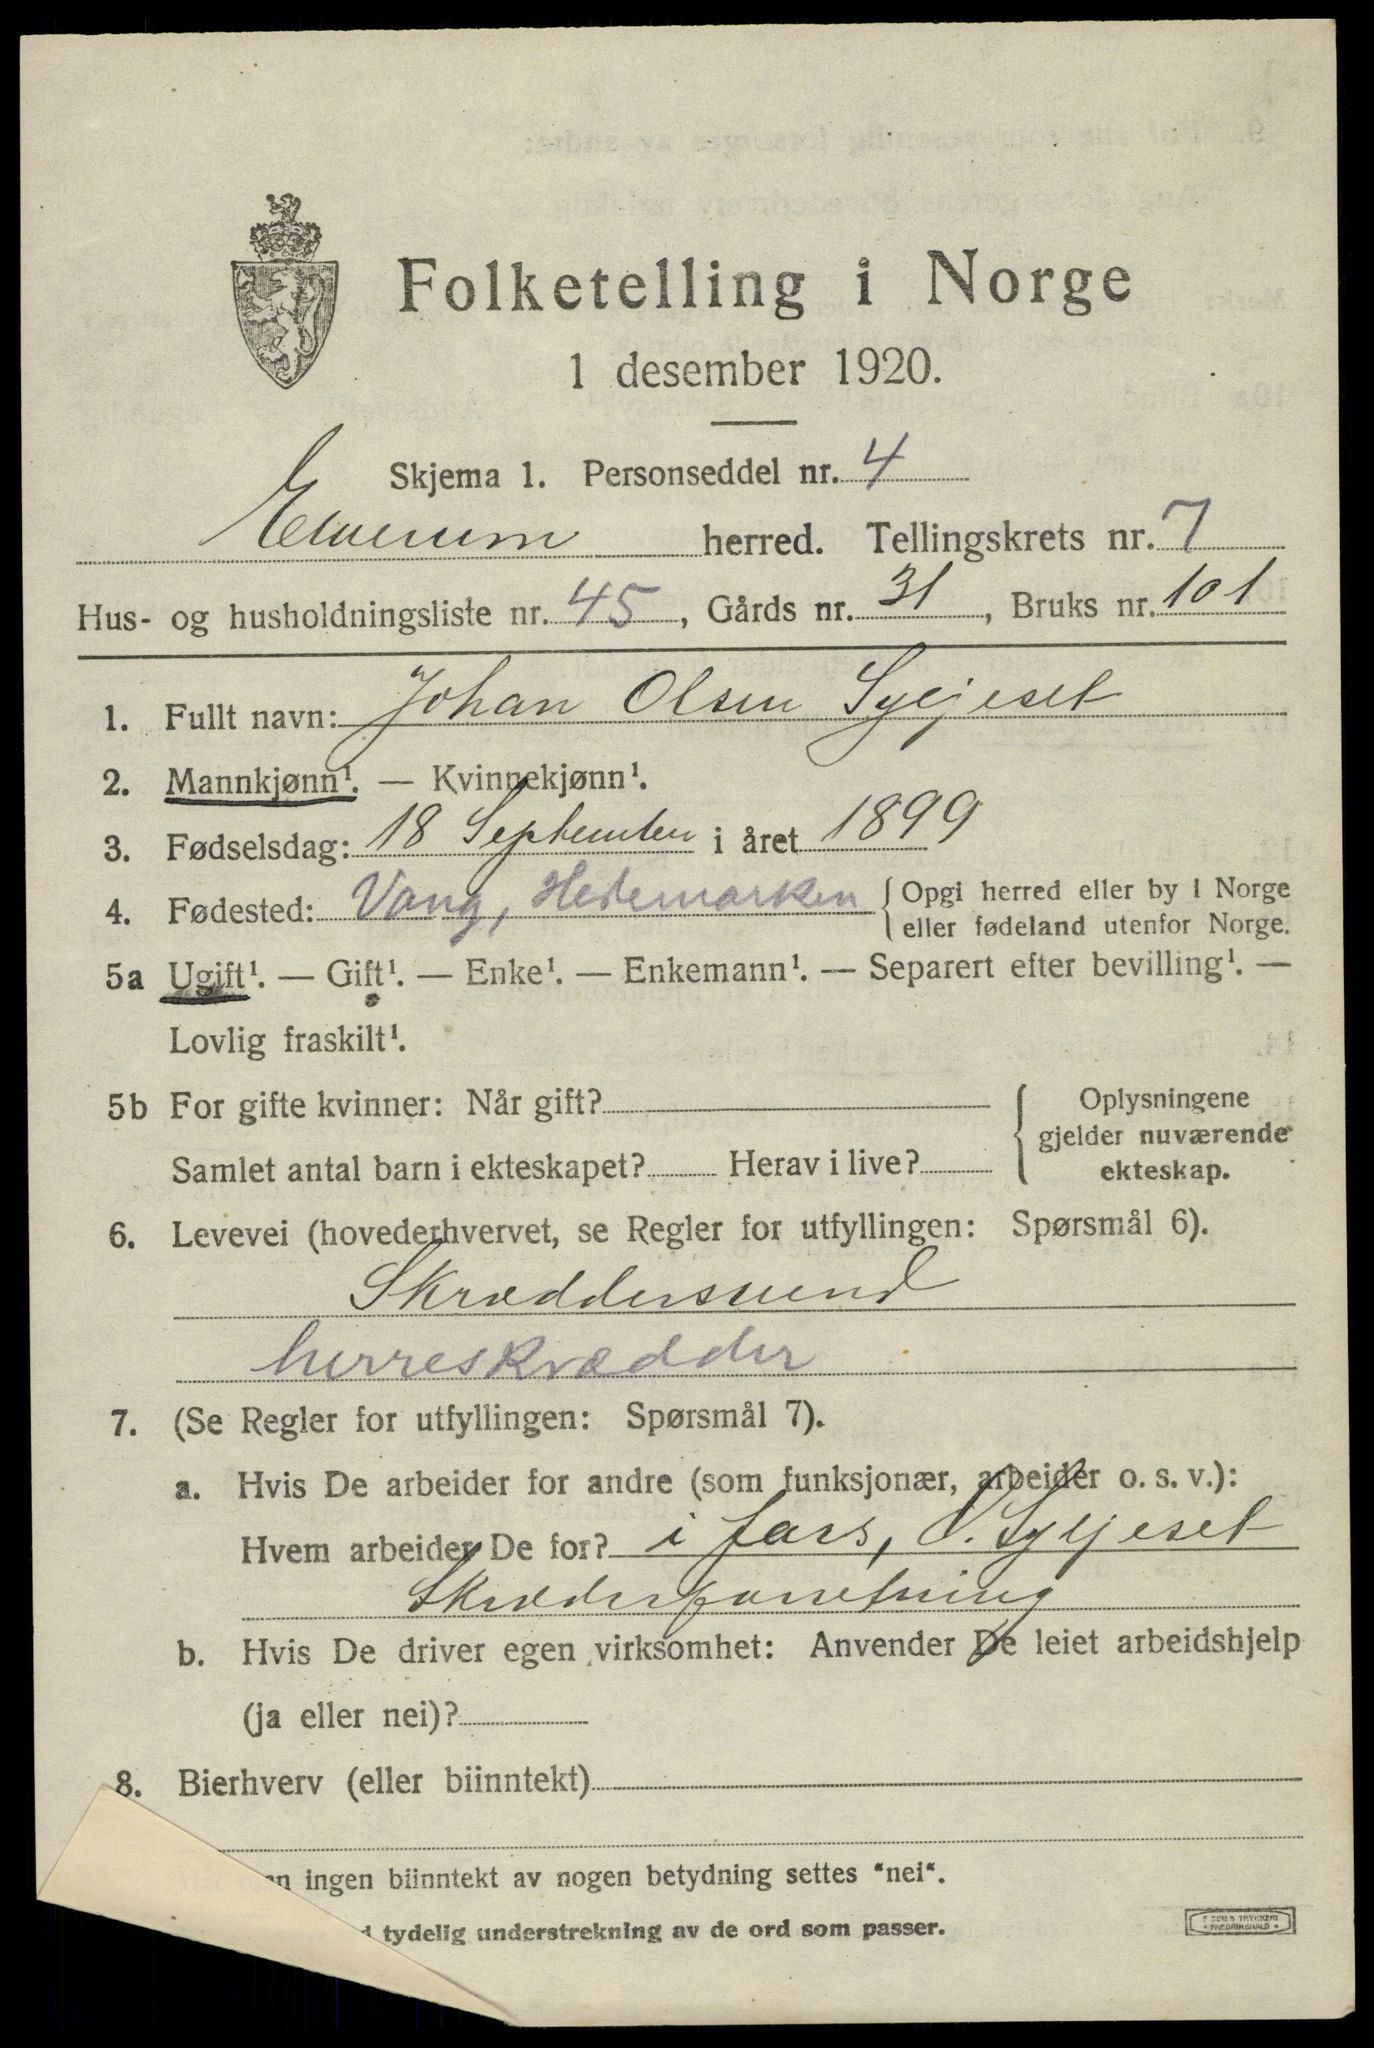 Folketelling i Norge
1 desember 1920.
Skjema 1. Personseddel nr. 4
Elverum herred. Tellingskrets nr. 7
Hus- og husholdningsliste nr. 45, Gårds nr. 31, Bruks nr. 101
1. Fullt navn: Johan Olsen Syljeset
2. Mannkjønn¹. — Kvinnekjønn¹.
3. Fødselsdag: 18 September i året 1899
4. Fødested: Vang, Hedemarken {Opgi herred eller by i Norge
eller fødeland utenfor Norge.
5a Ugift¹. — Gift¹. — Enke¹. — Enkemann¹. — Separert efter bevilling¹. —
Lovlig fraskilt¹.
5b For gifte kvinner: Når gift?
Samlet antal barn i ekteskapet? Herav i live?
{Oplysningene
gjelder nuværende
ekteskap.
6. Levevei (hovederhvervet, se Regler for utfyllingen: Spørsmål 6).
Skræddersvend
herreskrædder
7. (Se Regler for utfyllingen: Spørsmål 7).
a. Hvis De arbeider for andre (som funksjonær, arbeider o. s. v.):
Hvem arbeider De for? i fars, O. Syljeset
Skrædderforretning
b. Hvis De driver egen virksomhet: Anvender De leiet arbeidshjelp
(ja eller nei)?
8. Bierhverv (eller biinntekt)
en ingen biinntekt av nogen betydning settes "nei".
d tydelig understrekning av de ord som passer.